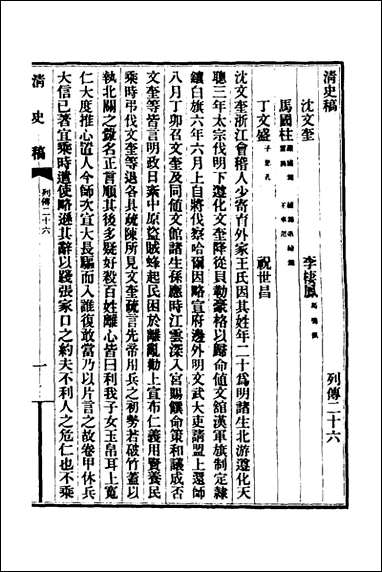 清史稿
列傳二十六
沈文奎
李棲鳳 馬鳴佩
馬國柱
丁文盛 子思孔
祝世昌
沈文奎浙江會稽人少寄育外家王氏因其姓年二十為明諸生北游遵化天
聰三年太宗伐明下遵化文奎降從貝勒豪格以歸命値文館漢軍旗制定隸
鑲白旗六年六月上自將伐察哈爾因略宣府邊外明文武大吏請盟上還師
八月丁卯召文奎及同値文館諸生孫應時江雲深入宮賜饌命策和議成否
文奎等皆言明政日紊中原盜賊蜂起民困於離亂勸上宣布仁義用賢養民
乘時弔伐文奎等退各具疏陳所見文奎疏言先帝用兵之初勢若破竹蓋以
執北關之釁名正言順其後多疑好殺百姓離心皆曰利我子女玉帛耳上寬
仁大度推心置人今師次宣大長驅而入誰復敢當乃以片言之故卷甲休兵
大信已著宜乘時遣使略遜其辭以踐張家口之約夫不利人之危仁也不乘
清史稿
列傳二十六
一